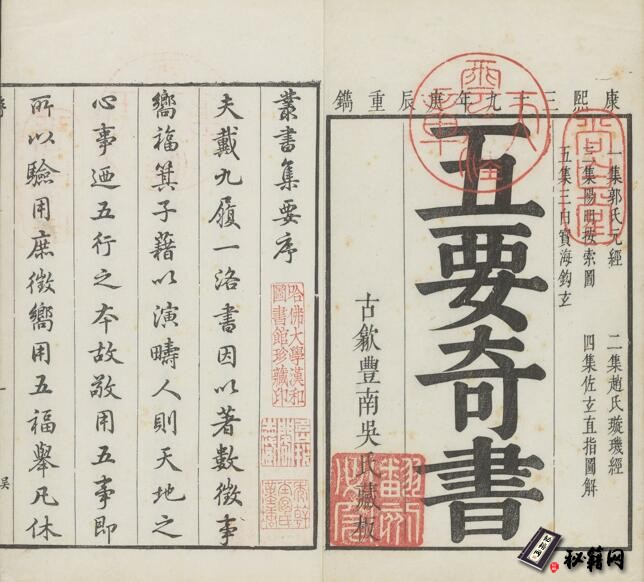 康熙三十九年庚辰重鐫
一集郭氏元經
二集趙氏璇璣經
三集陽明按索圖
四集佐玄直指圖解
五集三白寶海鈎玄
五要奇書
古歙豐南吳氏藏板
叢書集要序
哈佛大學漢和
圖書館珍藏印
夫戴九履一洛書因以著數徵事
嚮福箕子藉以演疇人則天地之
心事迺五行之本故敬用五事即
所以驗用庶徵嚮用五福舉凡休
序
一
吳
秘籍网